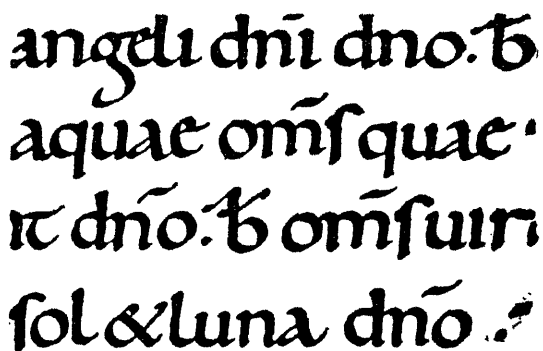 angeli dn̄i dno. ƀ
aquae om̄ſ quae
it dn̄o. ƀ om̄ſ uir
ſol & luna dn̄o